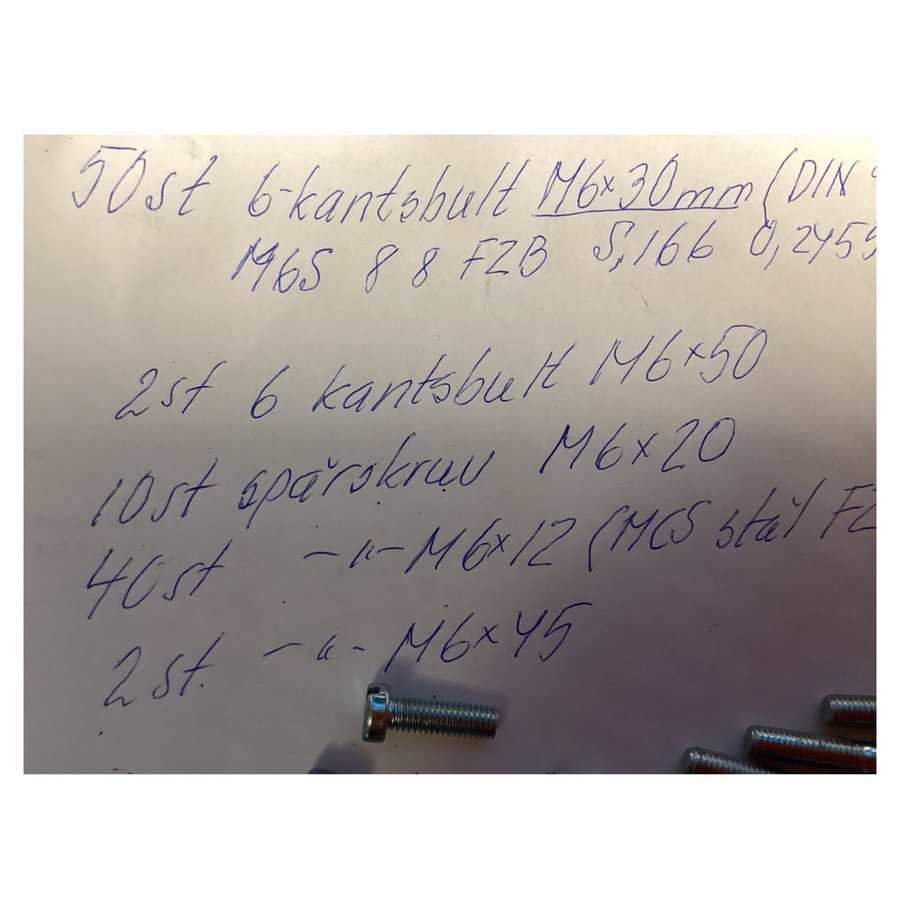 50st 6-kantsbult M6x30mm (DIN
M6S 8 8 FZB 5,166 0,2459
2st 6 kantsbult M6x50
10st spårskruv M6x20
40st -"- M6x12 (MCS stål FZ
2st. -"- M6x45